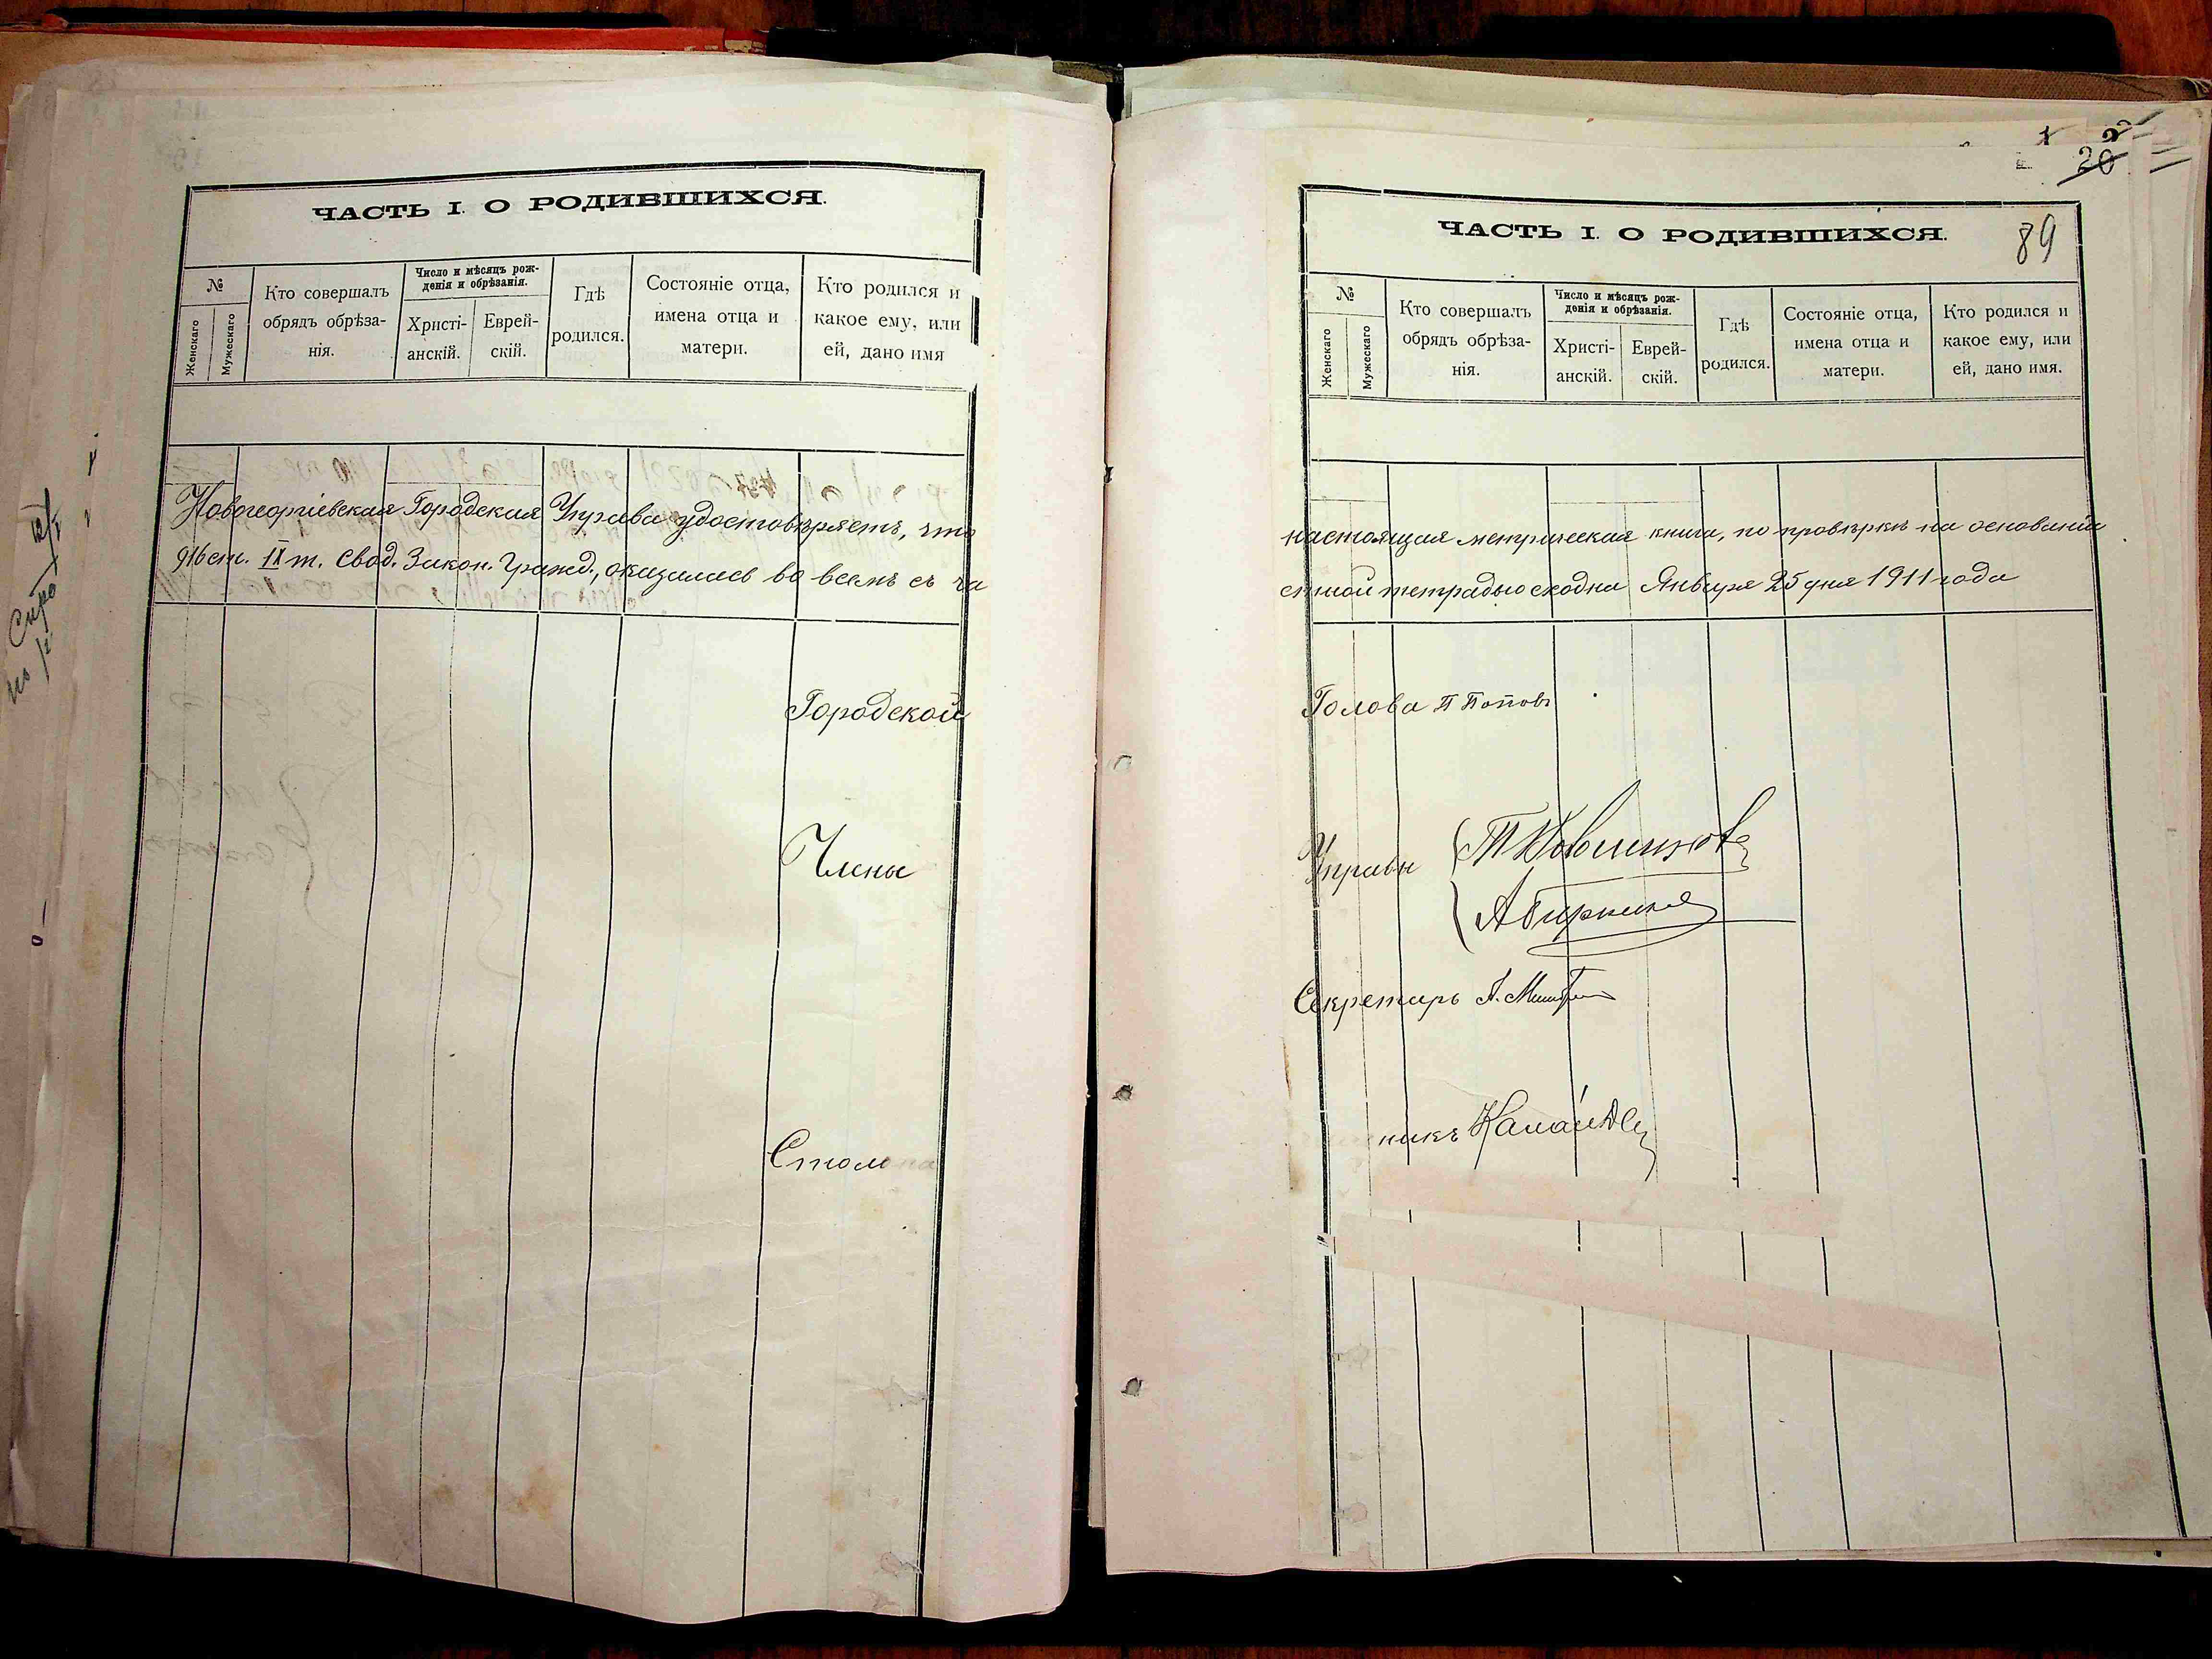 ЧАСТЬ I. О РОДИВШИХСЯ.
№
Женскаго
Мужескаго
Кто совершалъ
обрядъ обрѣза-
нія.
Число и мѣсяцъ рож-
денія и обрѣзанія.
Христі-
анскій.
Еврей-
скій.
Гдѣ
родился.
Состояніе отца,
имена отца и
матери.
Кто родился и
какое ему, или
ей, дано имя
Новогеоргіевская Городская Управа удостовѣряетъ, что
916 ст. IX т. Свод. Закон. Гражд., оказалась во всемъ съ ча
Городской
Члены
Столо
20
89
ЧАСТЬ I. О РОДИВШИХСЯ.
№
Женскаго
Мужескаго
Кто совершалъ
обрядъ обрѣза-
нія.
Число и мѣсяцъ рож-
денія и обрѣзанія.
Христі-
анскій.
Еврей-
скій.
Гдѣ
родился.
Состояніе отца,
имена отца и
матери.
Кто родился и
какое ему, или
ей, дано имя.
настоящая метрическая книга, по провѣркѣ на основаніи
стной тетрадью сходна Января 25 дня 1911 года
Голова П Поповъ
Управы
Секретарь А.
никъ